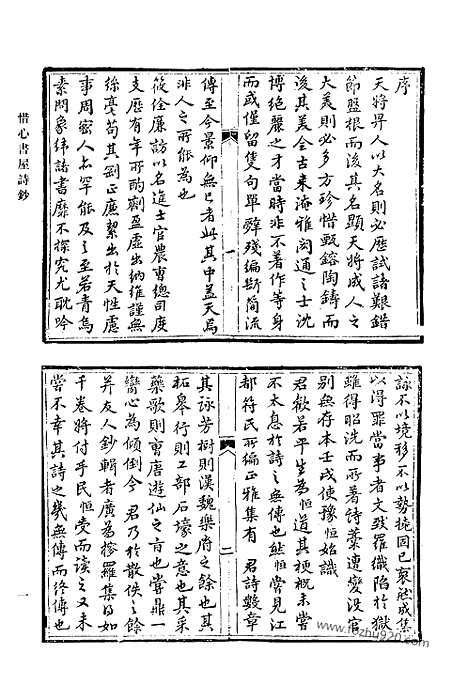 惜心書屋詩鈔
序
天將畀人以大名則必歷試諸艱錯
節盤根而後其名顯天將成人之
大美則必多方珍惜甄鎔陶鑄而
後其美全古来淹雅閎通之士沈
博绝麗之才當時非不著作等身
而或僅留隻句單辭殘編斷简流
一
傳至今景仰無已者此其中盖天焉
非人之所能為也
筱佺廉訪以名進士官農曹總司度
支歷有年所酌劑盈虛出纳維謹無
絲毫苟其剴正廉絜出於天性處
事周密人亦罕能及之至若青烏
素問象緯諸書靡不探究尤耽吟
詠不以境移不以勢撓固已裒然成集
以得罪當事者文致羅織陷於獄
雖得昭洗而所著詩藁遭變沒官
别無存本壬戌使豫恒始識
君歡若平生為恒道其梗概未嘗
不太息於詩之無傳也然恒嘗見江
都符氏所编正雅集有 君詩數章
二
其詠芳樹則漢魏樂府之餘也其
柘皋行則工部石壕之意也其采
藥歌則曹唐遊仙之旨也嘗鼎一
臠心為傾倒今 君乃於散佚之餘
并友人鈔輯者廣為搽羅集得如
干卷將付手民恒受而讀之又未
嘗不幸其詩之幾無傳而終傳也
一
www.fozhu920.com